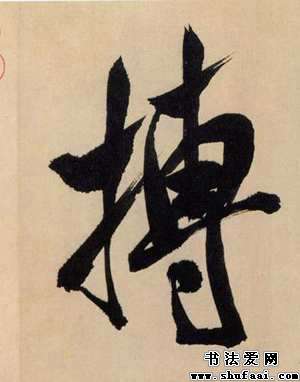 搏
书法爱网
www.shufaai.com